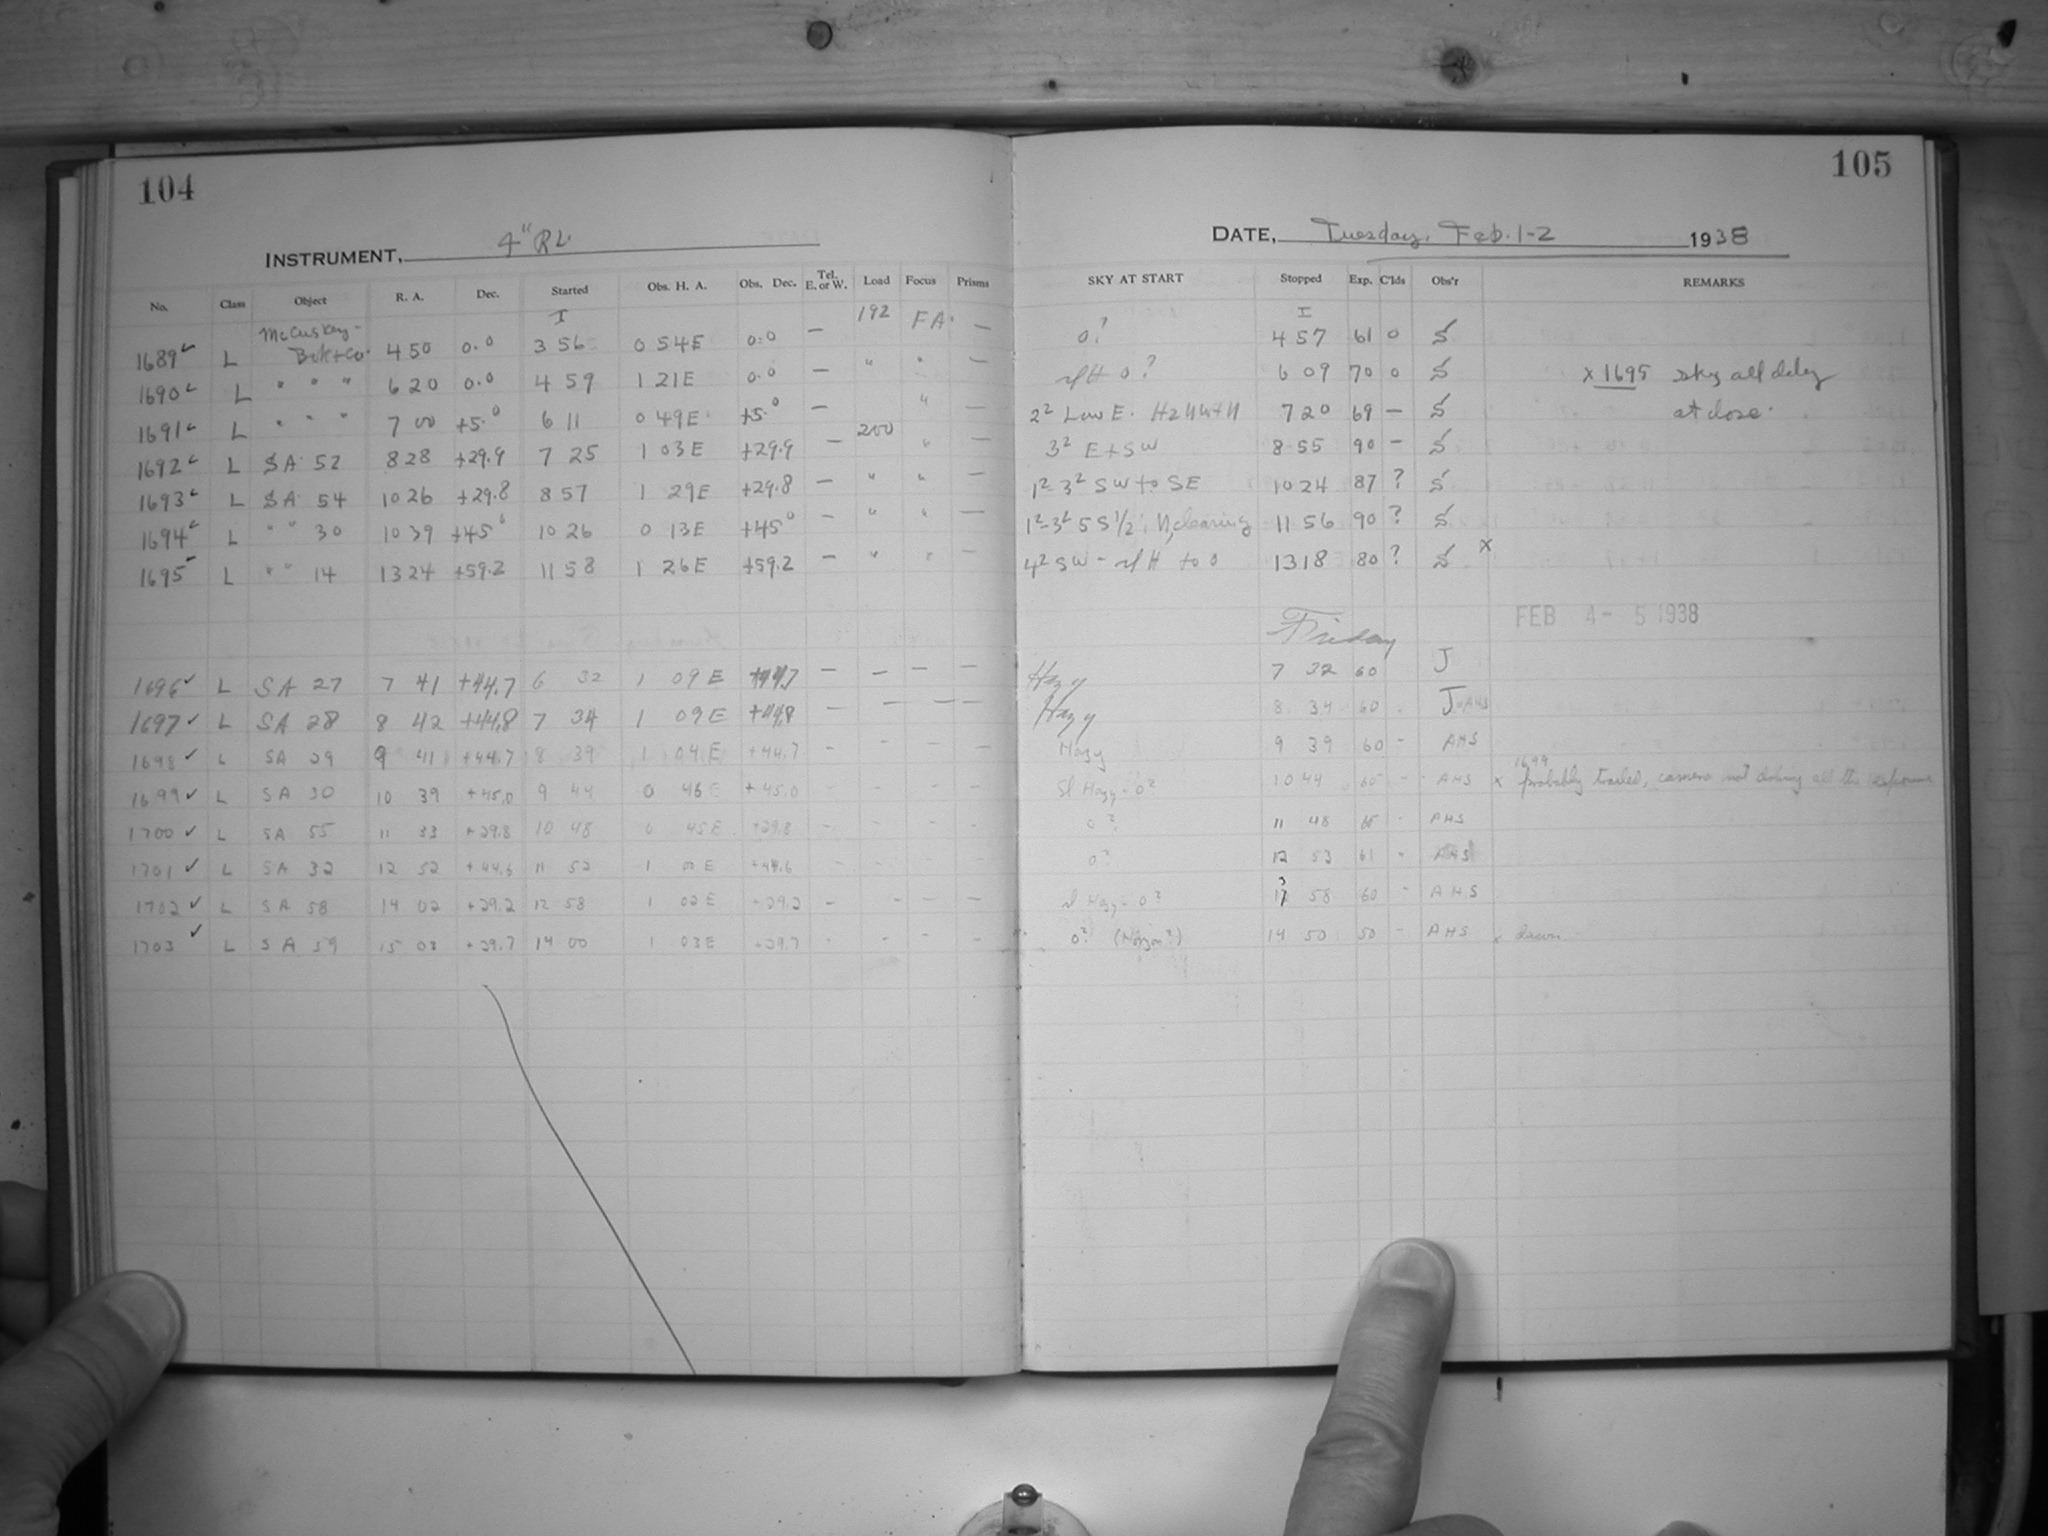 104
INSTRUMENT, 4" RL.
No. Class Object R. A. Dec. Started Obs. H. A. Obs. Dec. Tel. E. or W. Load Focus Prisms
I 192 FA.
McCuskey-
1689 L Bok+Co. 4 50 0.0 3 56 0 54E 0.0 — —
1690 L " " " 6 20 0.0 4 59 1 21E 0.0 — " " —
1691 L " " " 7 00 +5.0 6 11 0 49E +5.0 — " —
200
1692 L SA 52 8 28 +29.9 7 25 1 03E +29.9 — " —
1693 L SA 54 10 26 +29.8 8 57 1 29E +29.8 — " " —
1694 L " " 30 10 39 +45° 10 26 0 13E +45° — " " —
1695 L " " 14 13 24 +59.2 11 58 1 26E +59.2 — " " —
1696 ✓ L SA 27 7 41 +44.7 6 32 1 09E +44.7 — — — —
1697 ✓ L SA 28 8 42 +44.8 7 34 1 09E +44.8 — — — —
1698 ✓ L SA 29 9 41 +44.7 8 39 1 04E +44.7 - - - -
1699 ✓ L SA 30 10 39 +45.0 9 44 0 46E +45.0 - - - -
1700 ✓ L SA 55 11 33 +29.8 10 48 0 45E +29.8 - - - -
1701 ✓ L SA 32 12 52 +44.6 11 52 1 00E +44.6 - - - -
1702 ✓ L SA 58 14 02 +29.2 12 58 1 02E +29.2 - - - -
1703 ✓ L SA 59 15 03 +29.7 14 00 1 03E +29.7 - - - -
105
DATE, Tuesday, Feb. 1-2 1938
SKY AT START Stopped Exp. C'lds Obs'r REMARKS
I
0? 4 57 61 0 S
sl H 0? 6 09 70 0 S x 1695 sky all
2² Low E. 7 20 69 — S at close.
3² E+SW 8 55 90 — S
1²-3² SW to SE 10 24 87 ? S
1²-3² S 1/2; N clearing 11 56 90 ? S
4² SW - sl H to 0 13 18 80 ? S x
Friday FEB 4-5 1938
Hazy 7 32 60 J
Hazy 8 34 60 J-AHS
Hazy 9 39 60 - AHS
1699
Sl Hazy - 0? 10 44 60 - AHS x probably trailed, camera not all the exposure
0? 11 48 60 - AHS
0? 12 53 61 - AHS
sl Hazy - 0? 13 58 60 - AHS
0? 14 50 50 - AHS x dawn